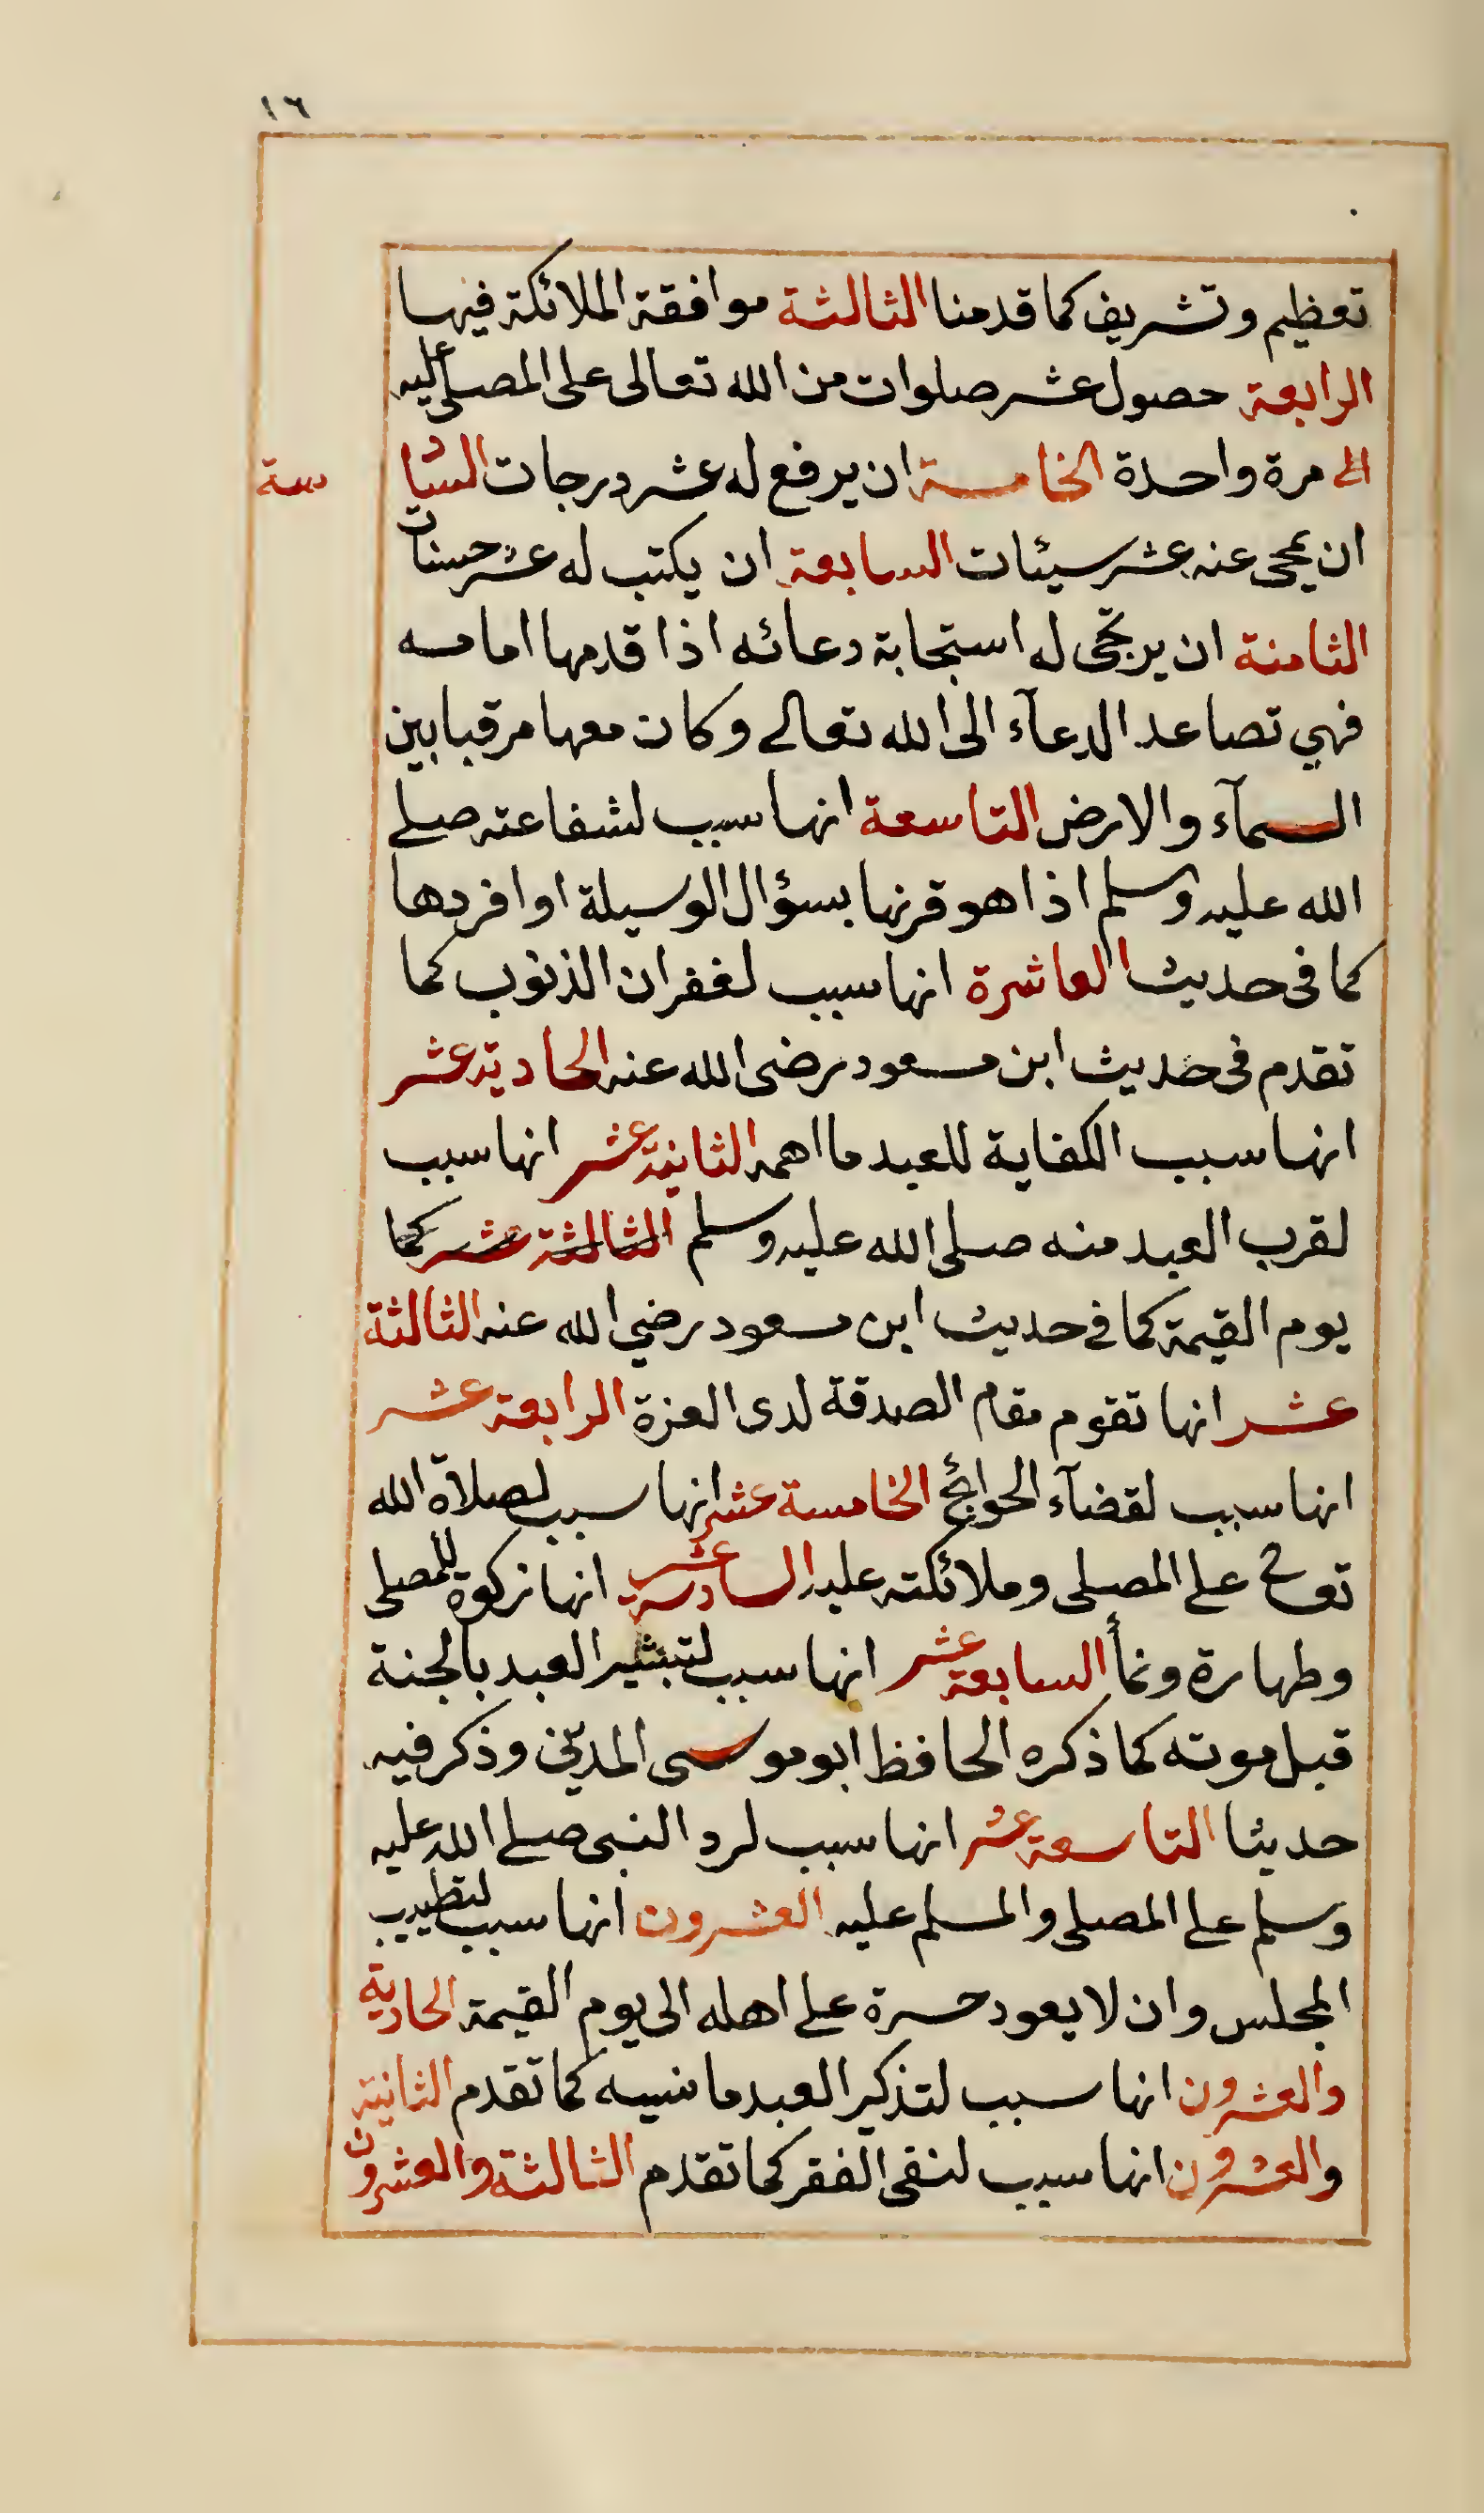 ١٦
تعظيم وتشريف كما قدمنا الثالثة موافقة الملائكة فيها
الرابعة حصول عشر صلوات من الله تعالى على المصلى عليه
مرة واحدة الخامسة ان يرفع له عشر درجات السادسة
ان يمحى عنه عشر سيئات السابعة ان يكتب له عشر حسنات
الثامنة ان يرتجى له استجابة دعائه اذا قدمها امامه
فهي تصاعد الدعآء الى الله تعالى وكان معها مرقبا بين
السمآء والارض التاسعة انها سبب لشفاعته صلى
الله عليه وسلم اذا هو قرنها بسؤال الوسيلة او افردها
كما فى حديث العاشرة انها سبب لغفران الذنوب كما
تقدم فى حديث ابن مسعود رضى الله عنه الحادية عشر
انها سبب الكفاية للعبد ما اهمه الثانية عشر انها سبب
لقرب العبد منه صلى الله عليه وسلم الثالثة عشر كما
يوم القيمة كما في حديث ابن مسعود رضي الله عنه الثالثة
عشر انها تقوم مقام الصدقة لدى العزة الرابعة عشر
انها سبب لقضآء الحوائج الخامسة عشر انها سبب لصلاة الله
تعالى على المصلى وملائكته عليه السادسة عشر انها زكوة للمصلى
وطهارة ونمأ السابعة عشر انها سبب لتبشير العبد بالجنة
قبل موته كما ذكره الحافظ ابو موسى المديني وذكر فيه
حديثا التاسعة عشر انها سبب لرد النبى صلى الله عليه
وسلم على المصلى والمسلم عليه العشرون انها سبب لتطييب
المجلس وان لا يعود حسرة على اهله الى يوم القيمة الحادية
والعشرون انها سبب لتذكير العبد ما نسيه كما تقدم الثانية
والعشرون انها سبب لنفى الفقر كما تقدم الثالثة والعشرون